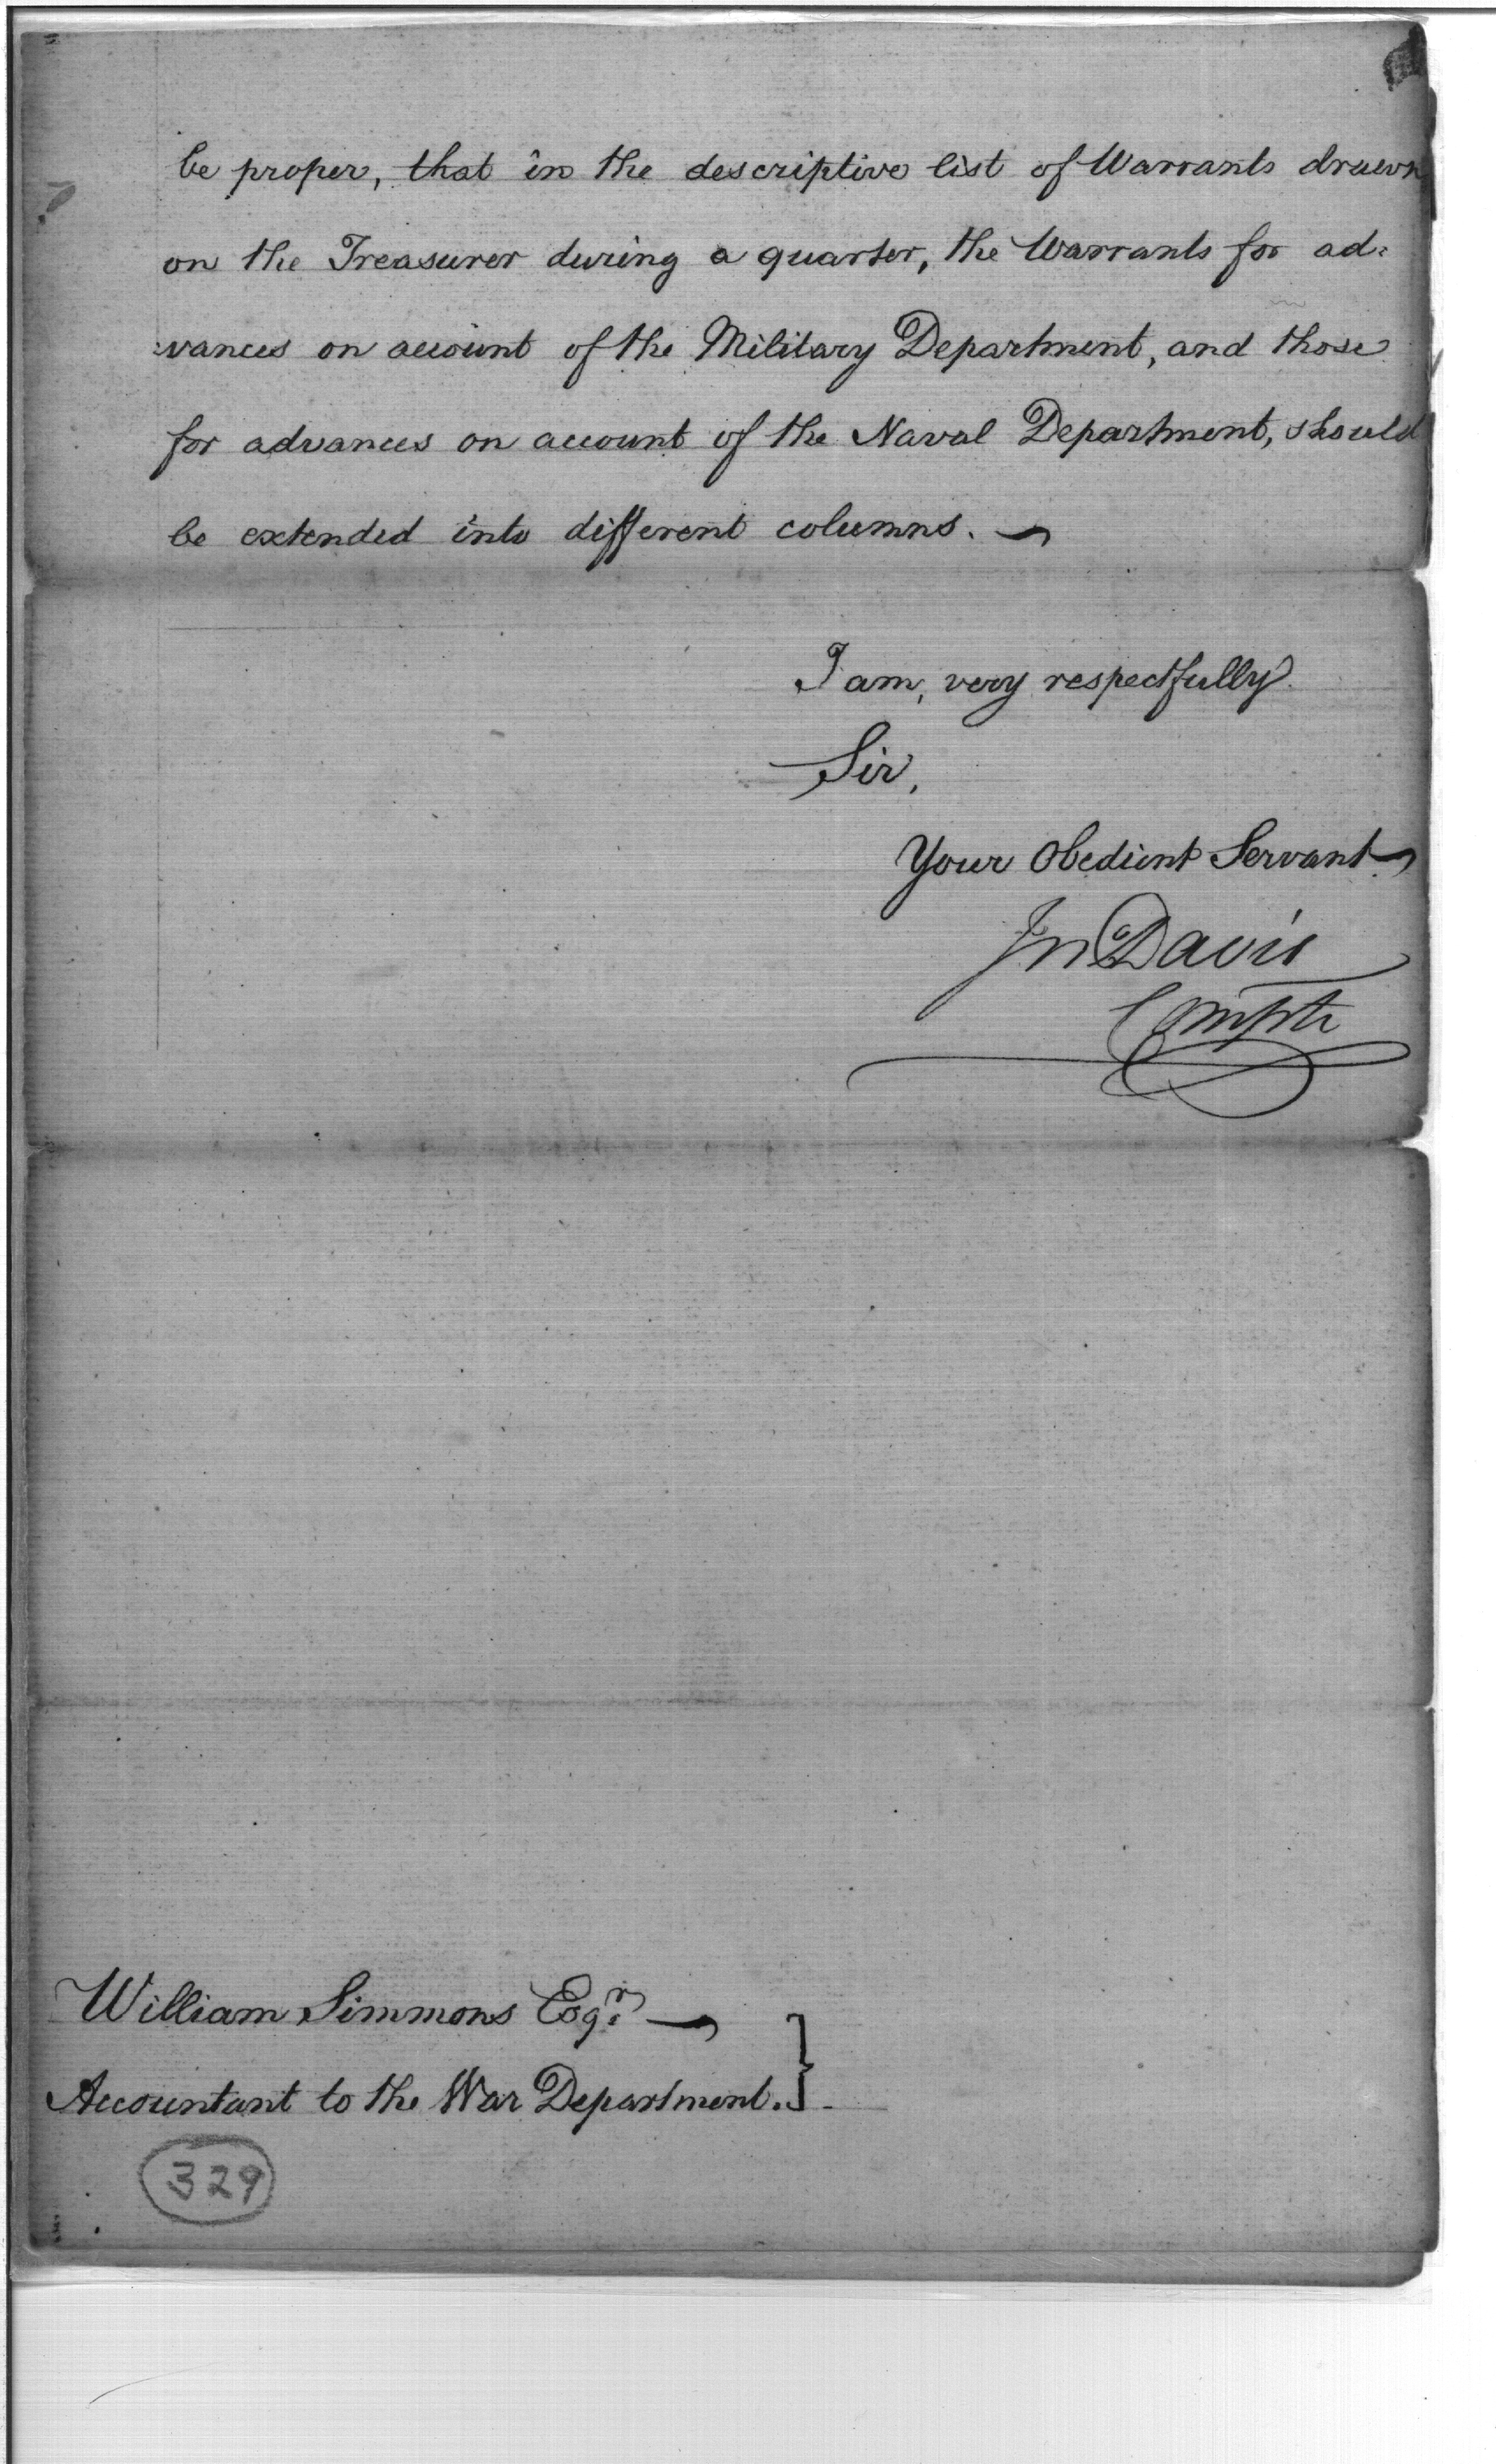 be proper, that in the descriptive list of Warrants drawn
on the Treasurer during a quarter, the Warrants for ad=
=vances on account of the Military Department, and those
for advances on account of the Naval Department, should
be extended into different columns.
I am, very respectfully
Sir,
Your Obedient Servant
Jn Davis
Comptr
William Simmons Esqr.
Accountant to the War Department.
329